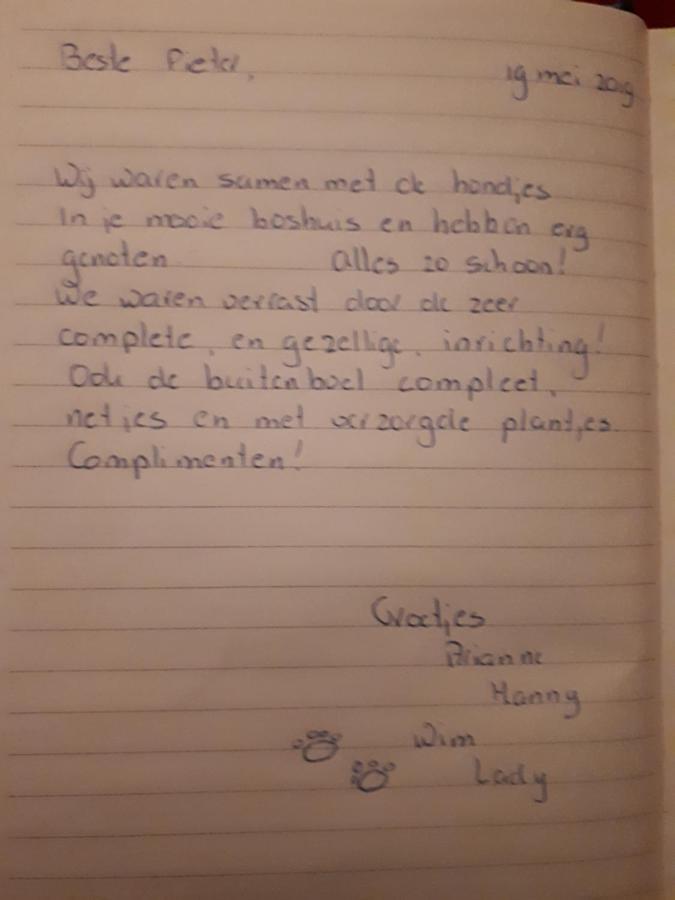 Beste Pieter,
19 mei 2019
Wij waren samen met de hondjes
in je mooie boshuis en hebben erg
genoten alles zo schoon!
We waren verrast door de zeer
complete, en gezellige, inrichting!
Ook de buitenboel compleet,
netjes en met verzorgde plantjes.
Complimenten!
Groetjes
Arianne
Hanny
Wim
Lady